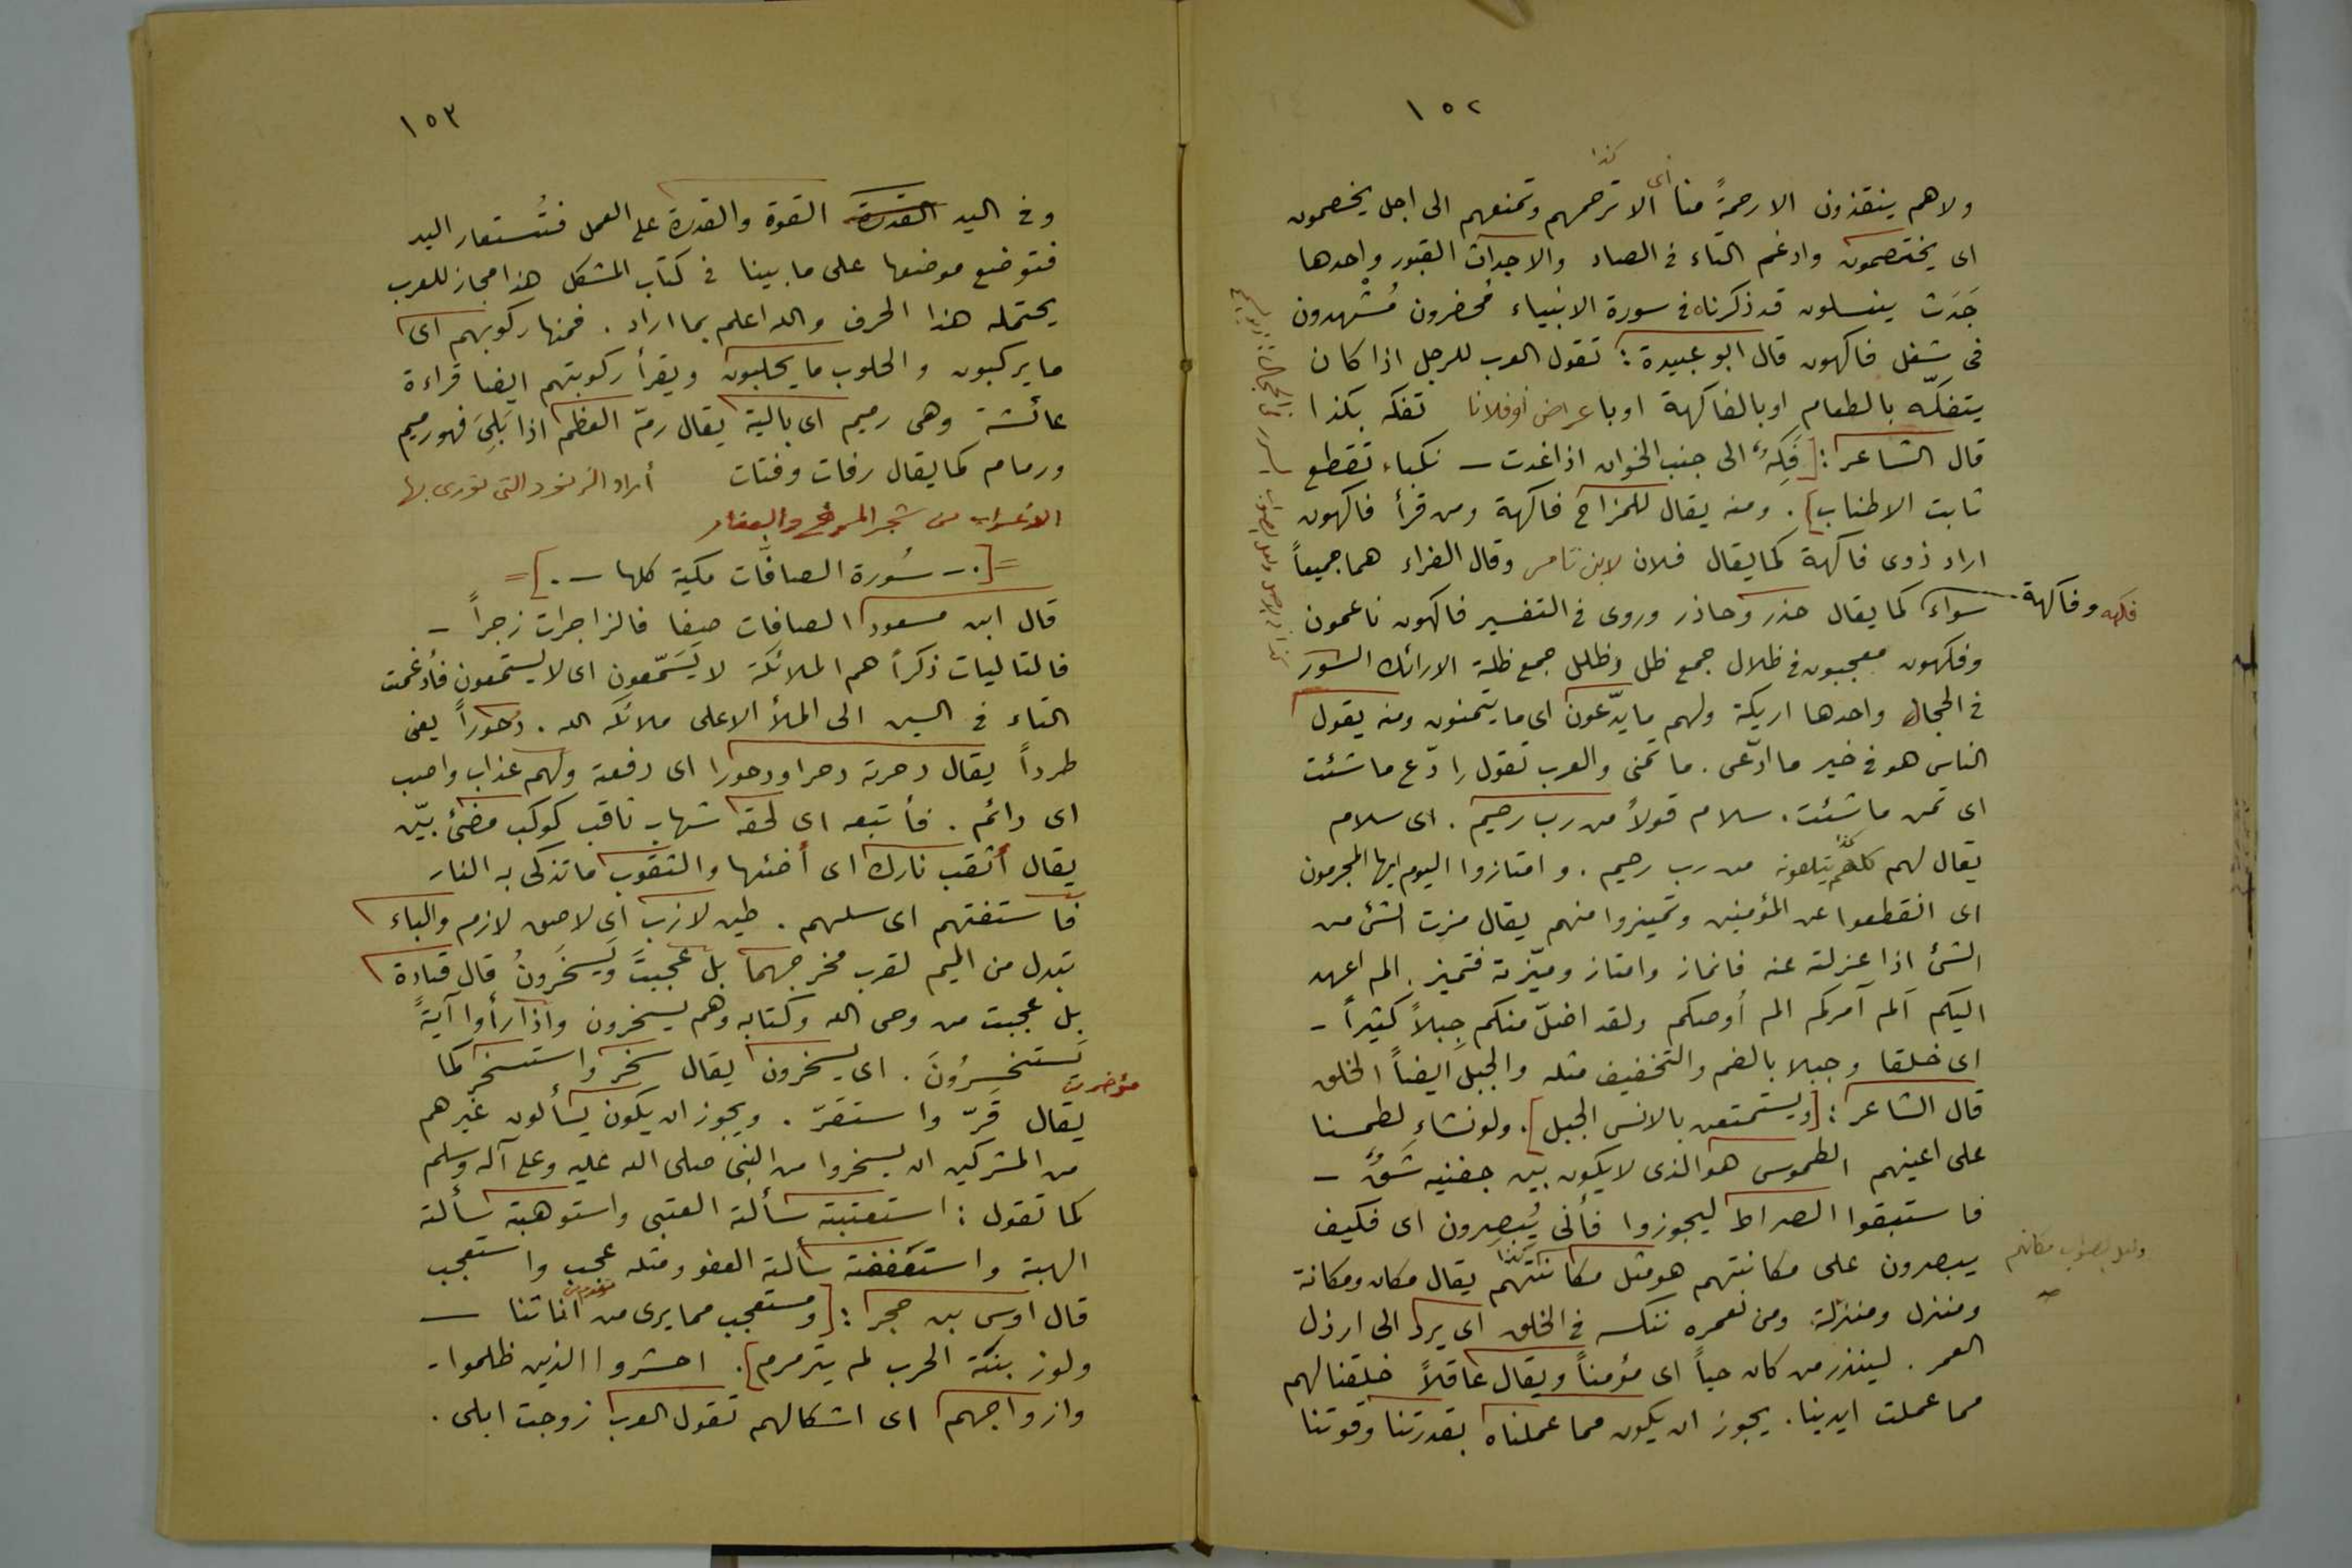 ١٥٢
كذا
ولاهم ينقذون الا رحمةً منا أى الا ترحمهم وتمنعهم الى اجل يخصمون
اى يختصمون وادغم التاء فى الصاد والاجداث القبور واحدها
جَدَث ينسلون قد ذكرناه فى سورة الانبياء مُحضرون مُشْهدون
فى شغل فاكهون قال ابو عبيدة: تقول العرب للرجل اذا كان
يتفكّه بالطعام او بالفاكهة او باعراض او فلانا تفكه بكذا
قال الشاعر: [فَكِهٌ الى جنب الخوان اذا غدت – نكباء تقطع
ثابت الاطناب]. ومنه يقال للمزاح فاكهة ومن قرأ فاكهون
اراد ذوى فاكهة كما يقال فلان لابن تامر وقال الفراء هما جميعاً
فكهه وفاكهة
سواء كما يقال حذر وحاذر وروى فى التفسير فاكهون ناعمون
وفكهون معجبون فى ظلال جمع ظل وظلل جمع ظلة الارائك السرر
فى الحجال واحدها اريكة ولهم ما يدّعون اى ما يتمنون ومنه يقول
الناس هو فى خير ما ادّعى. ما تمنى والعرب تقول ادّع ما شئت
اى تمن ما شئت. سلام قولاً من رب رحيم. اى سلام
يقال لهم كلهم كذا يتلقونه من رب رحيم. وامتازوا اليوم ايها المجرمون
اى انقطعوا عن المؤمنين وتميزوا منهم يقال مزت الشئ من
الشئ اذا عزلته عنه فانماز وامتاز وميّزته فتميز. الم اعهد
اليكم الم آمركم الم أوصكم ولقد اضلّ منكم جِبلاً كثيراً –
اى خلقا وجبلا بالضم والتخفيف مثله والجبل ايضاً الخلق
قال الشاعر: [ويستمتعن بالانس الجبل]. ولو نشاء لطمسنا
على اعينهم الطموس هو الذى لا يكون بين جفنيه شَقٌ –
فاستبقوا الصراط ليجوزوا فأنى يُبصرون اى فكيف
يبصرون على مكانتهم هو مثل مكانتهم كذا يقال مكان ومكانة
ولعل الصواب مكانهم
ومنزل ومنزلة. ومن نعمره ننكسه فى الخلق اى يرد الى ارذل
العمر. لينذر من كان حياً اى مؤمناً ويقال عاقلاً خلقنا لهم
مما عملت ايدينا. يجوز ان يكون مما عملناه بقدرتنا وقوتنا
١٥٣
وفى اليد القدرة القوة والقدرة على العمل فتُستعار اليد
فتوضع موضعها على ما بينا فى كتاب المشكل هذا مجاز للعرب
يحتمله هذا الحرف والله اعلم بما اراد. فمنها ركوبهم اى
ما يركبون والحلوب ما يحلبون ويقرأ ركوبتهم ايضا قراءة
عائشة وهى رميم اى بالية يقال رمّ العظم اذا بَلِىَ فهو رميم
ورمام كما يقال رفات وفتات أراد الزنود التى تورى بها
الاعراب من شجر المرخ والعفار
=[.– سُورة الصافّات مكية كلها –.]=
قال ابن مسعود الصافات صفا فالزاجرات زجراً –
فالتاليات ذكراً هم الملائكة لا يَسّمّعون اى لا يستمعون فأدغمت
التاء فى السين الى الملأ الاعلى ملائكة الله. دُحوراً يعنى
طرداً يقال دحرته دحرا ودحورا اى دفعته ولهم عذاب واصب
اى دائم. فأتبعه اى لحقه شهاب ثاقب كوكب مضئ بيّن
يقال أثقب نارك اى أضئها والثقوب ما تذكى به النار
فاستفتهم اى سلهم. طين لازب اى لاصق لازم والباء
تبدل من الميم لقرب مخرجهما بل عجبتَ ويَسخَرونُ قال قتادة
بل عجبت من وحى الله وكتابه وهم يسخرون واذا رأوا آيةً
يَستخسِرُونَ. اى يسخرون يقال سخر واستسخر كما
يقال قَرّ واستقرّ. ويجوز ان يكون يسألون غيرهم
من المشركين ان يسخروا من النبى صلى الله عليه وعلى آله وسلم
كما تقول: استعتبته سألته العتبى واستوهبته سألته
الهبة واستعففته سألته العفو ومثله عجب واستعجب
قال اوس بن حجر: [ومستعجب مما يرى من اناتنا –
ولو زبنته الحرب لم يترمرم]. احشروا الذين ظلموا–
وازواجهم اى اشكالهم تقول العرب زوجت ابلى.